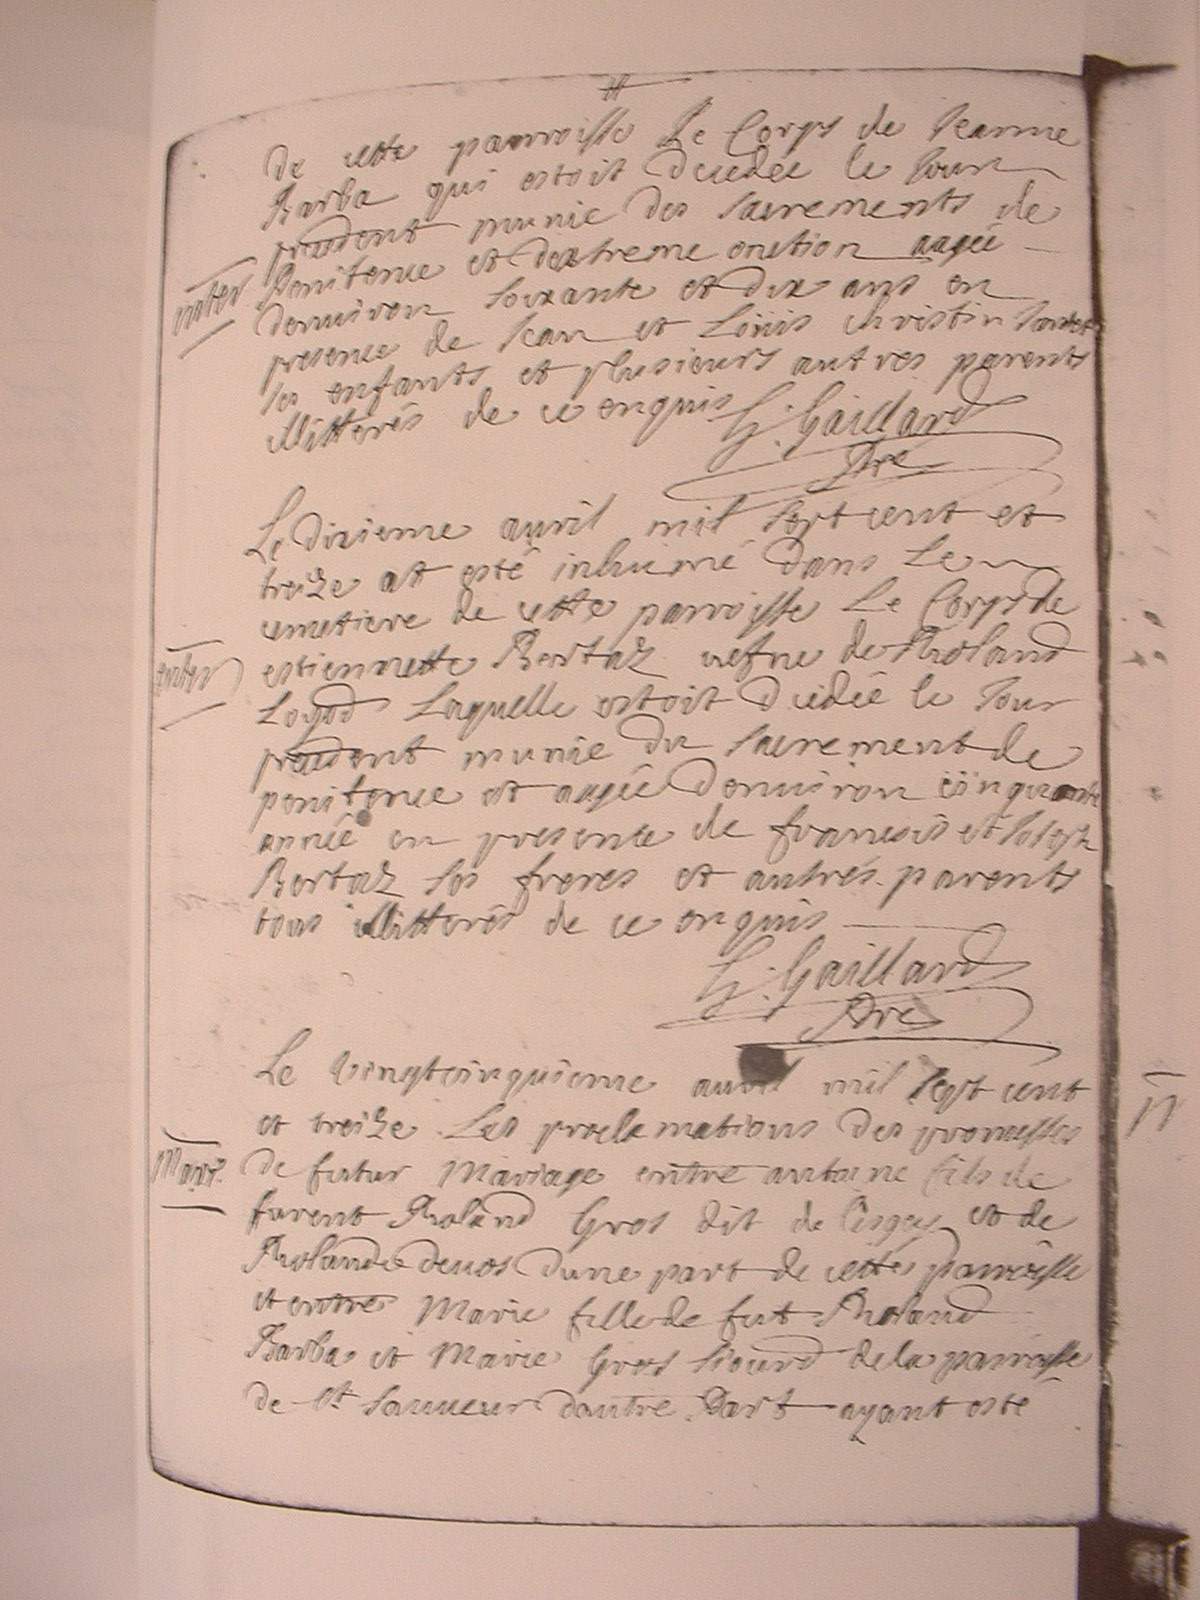 de cette parroisse Le Corps de Jeanne
Barba qui estoit decedée le Jour
precedent munie des sacrements de
enter
penitence et dextreme onction aagée
denuiron soixante et dix ans en
presence de Jean et Loüis christin
ses enfants et plusieurs autres parents
illitterés de ce enquis
G. Gaillard
Pre
Le dixieme auril mil sept cent et
treize at esté inhumé dans Le
cemetiere de cette parroisse Le Corps de
enter
estiennette Bertaz uefue de Roland
Logod Laquelle estoit decédée le Jour
precedent munie du sacrement de
penitence et aagée denuiron cinquante
année en presence de francois et Joseph
Bertaz ses freres et autres parents
tous illitterés de ce enquis
G. Gaillard
Pre
Le vingtcinquieme auril mil sept cent
et treize Les proclamations des promesses
Mari.
de futur Mariage entre antoine fils de
furent Roland Gros dit de et de
Rolande deuos dune part de cette parroisse
et entre Marie fille de fut Roland
Barba et Marie Gros de la parroisse
de St Sauueur dautre Part ayant esté